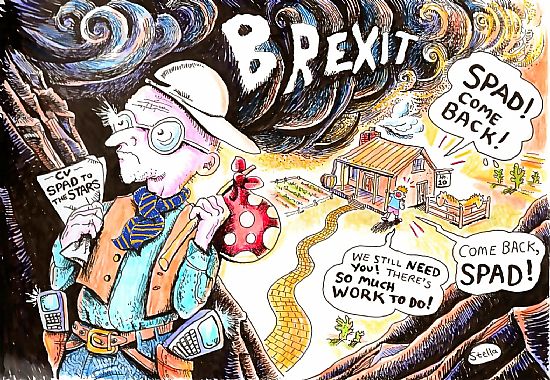 BREXIT
CV
SPAD TO
THE STARS
SPAD!
COME
BACK!
NO
10
WE STILL NEED
YOU! THERE'S
SO MUCH
WORK TO DO!
COME BACK,
SPAD!
Stella